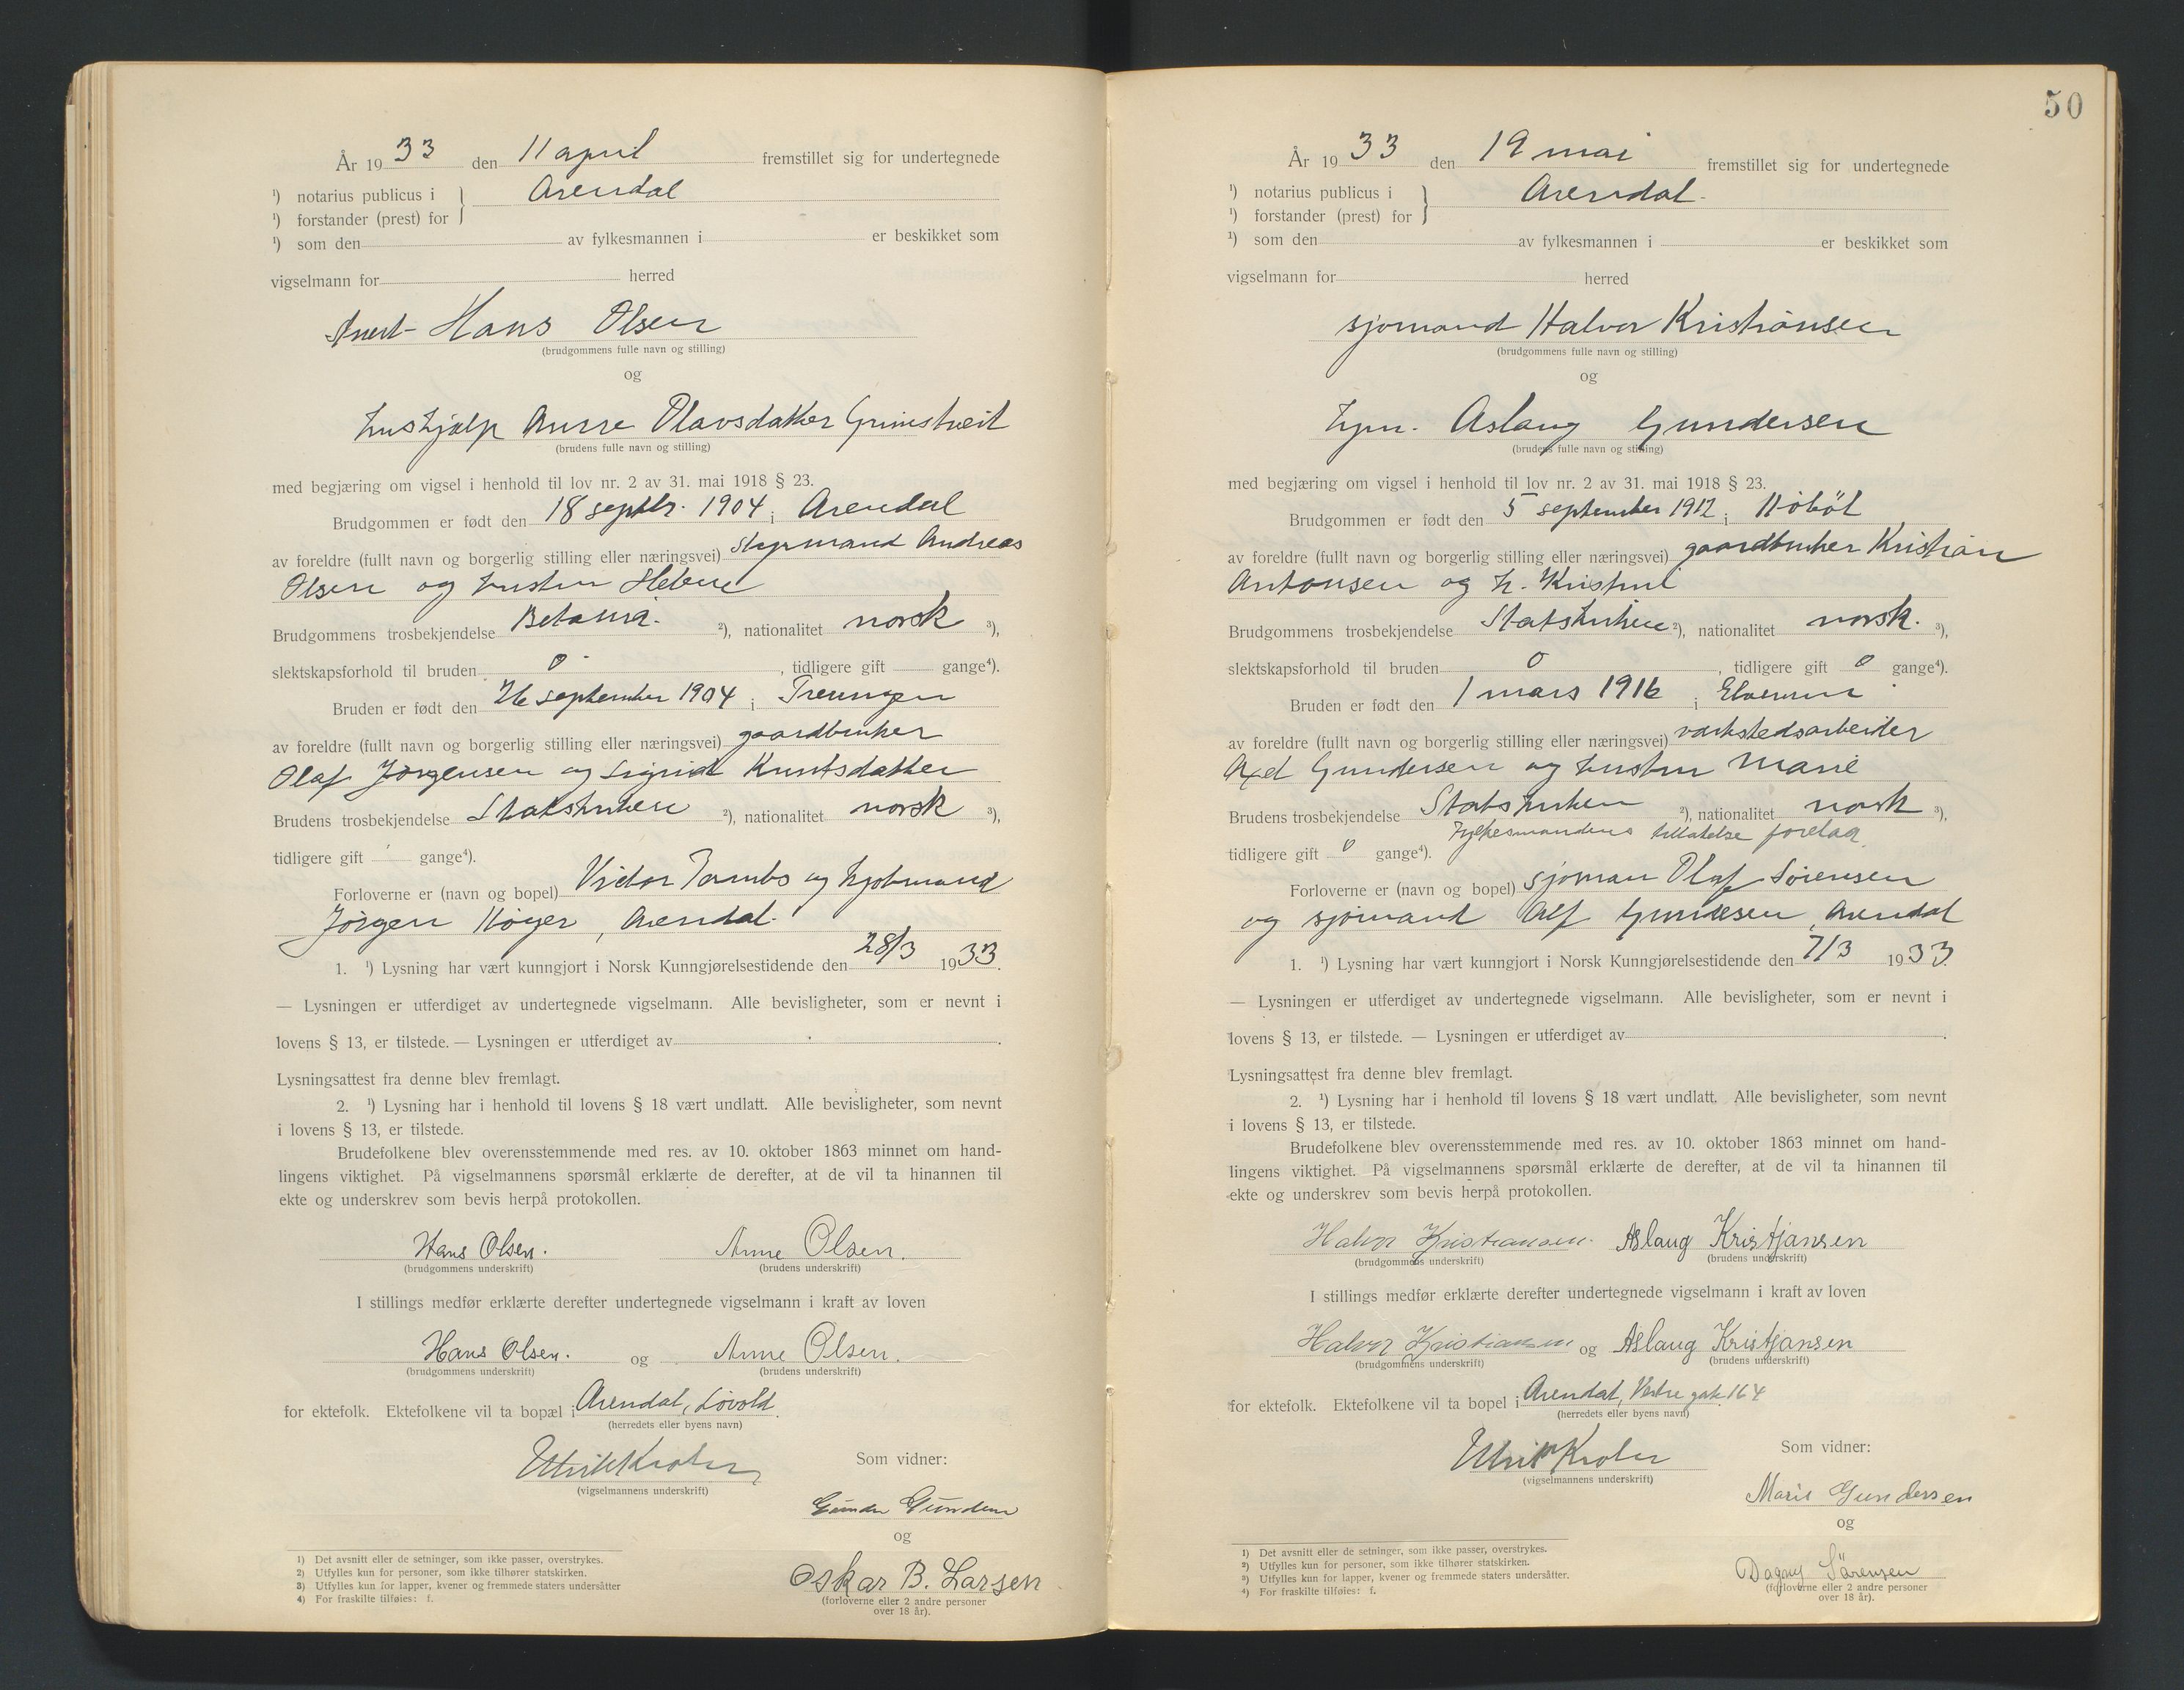 År 1933 den 11 april fremstillet sig for undertegnede
¹) notarius publicus i } Arendal
¹) forstander (prest) for
¹) som den av fylkesmannen i er beskikket som
vigselmann for herred
Hans Olsen
(brudgommens fulle navn og stilling)
og
hushjælp Anne Olavsdatter Grimstveit
(brudens fulle navn og stilling)
med begjæring om vigsel i henhold til lov nr. 2 av 31. mai 1918 § 23.
Brudgommen er født den 18 septbr. 1904 i Arendal
av foreldre (fullt navn og borgerlig stilling eller næringsvei) styrmand Andreas
Olsen og hustru Helene
Brudgommens trosbekjendelse Betania. ²), nationalitet norsk ³),
slektskapsforhold til bruden 0 , tidligere gift gange⁴).
Bruden er født den 26 september 1904 i Treungen
av foreldre (fullt navn og borgerlig stilling eller næringsvei) gaardbruker
Olaf Jørgensen og Sigrid Knutsdatter
Brudens trosbekjendelse Statskirken ²), nationalitet norsk ³),
tidligere gift gange⁴).
Forloverne er (navn og bopel) Victor Tambs og
Jørgen Høyer, Arendal.
1. ¹) Lysning har vært kunngjort i Norsk Kunngjørelsestidende den 28/3 1933.
— Lysningen er utferdiget av undertegnede vigselmann. Alle bevisligheter, som er nevnt i
lovens § 13, er tilstede. — Lysningen er utferdiget av .
Lysningsattest fra denne blev fremlagt.
2. ¹) Lysning har i henhold til lovens § 18 vært undlatt. Alle bevisligheter, som nevnt
i lovens § 13, er tilstede.
Brudefolkene blev overensstemmende med res. av 10. oktober 1863 minnet om hand-
lingens viktighet. På vigselmannens spørsmål erklærte de derefter, at de vil ta hinannen til
ekte og underskrev som bevis herpå protokollen.
Hans Olsen. Anne Olsen.
(brudgommens underskrift) (brudens underskrift)
I stillings medfør erklærte derefter undertegnede vigselmann i kraft av loven
Hans Olsen. og Anne Olsen.
(brudgommens underskrift) (brudens underskrift)
for ektefolk. Ektefolkene vil ta bopæl i Arendal, Løvold
(herredets eller byens navn)
Ulrik Krohn
(vigselmannens underskrift)
Som vidner:
Gunder Gundersen
og
Oskar B. Larsen
(forloverne eller 2 andre personer
over 18 år).
1) Det avsnitt eller de setninger, som ikke passer, overstrykes.
2) Utfylles kun for personer, som ikke tilhører statskirken.
3) Utfylles kun for lapper, kvener og fremmede staters undersåtter
4) For fraskilte tilføies: f.
50
År 1933 den 19 mai fremstillet sig for undertegnede
¹) notarius publicus i } Arendal.
¹) forstander (prest) for
¹) som den av fylkesmannen i er beskikket som
vigselmann for herred
sjømand Halvor Kristiansen
(brudgommens fulle navn og stilling)
og
Aslaug Gundersen
(brudens fulle navn og stilling)
med begjæring om vigsel i henhold til lov nr. 2 av 31. mai 1918 § 23.
Brudgommen er født den 5 september 1912 i Hobøl
av foreldre (fullt navn og borgerlig stilling eller næringsvei) gaardbruker Kristian
Antonsen og h. Kristine
Brudgommens trosbekjendelse Statskirken ²), nationalitet norsk. ³),
slektskapsforhold til bruden 0 , tidligere gift 0 gange⁴).
Bruden er født den 1 mars 1916 i Elverum
av foreldre (fullt navn og borgerlig stilling eller næringsvei) verkstedsarbeider
Axel Gundersen og hustru Marie
Brudens trosbekjendelse Statskirken ²), nationalitet norsk ³),
Fylkesmandens tillatelse forelaa.
tidligere gift 0 gange⁴).
Forloverne er (navn og bopel) sjøman Olaf Sørensen
og sjømand Alf Gundersen, Arendal
1. ¹) Lysning har vært kunngjort i Norsk Kunngjørelsestidende den 7/3 1933.
— Lysningen er utferdiget av undertegnede vigselmann. Alle bevisligheter, som er nevnt i
lovens § 13, er tilstede. — Lysningen er utferdiget av .
Lysningsattest fra denne blev fremlagt.
2. ¹) Lysning har i henhold til lovens § 18 vært undlatt. Alle bevisligheter, som nevnt
i lovens § 13, er tilstede.
Brudefolkene blev overensstemmende med res. av 10. oktober 1863 minnet om hand-
lingens viktighet. På vigselmannens spørsmål erklærte de derefter, at de vil ta hinannen til
ekte og underskrev som bevis herpå protokollen.
Halvor Kristiansen. Aslaug Kristjansen
(brudgommens underskrift) (brudens underskrift)
I stillings medfør erklærte derefter undertegnede vigselmann i kraft av loven
Halvor Kristiansen og Aslaug Kristjansen
(brudgommens underskrift) (brudens underskrift)
for ektefolk. Ektefolkene vil ta bopel i Arendal, Vestre gate 164
(herredets eller byens navn)
Ulrik Krohn
(vigselmannens underskrift)
Som vidner:
Marie Gundersen
og
Dagny Sørensen
(forloverne eller 2 andre personer
over 18 år).
1) Det avsnitt eller de setninger, som ikke passer, overstrykes.
2) Utfylles kun for personer, som ikke tilhører statskirken.
3) Utfylles kun for lapper, kvener og fremmede staters undersåtter.
4) For fraskilte tilføies: f.